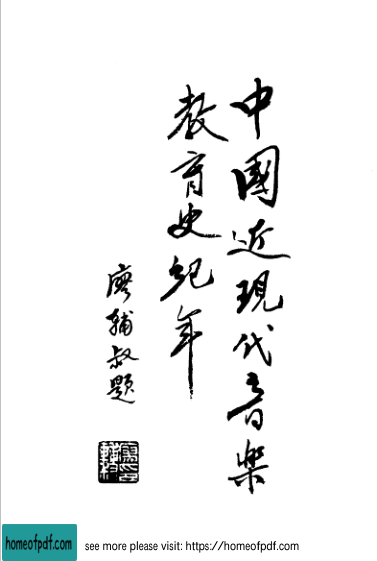 中國近現代音樂
教育史紀年
廖輔叔題
homeofpdf.com
see more please visit: https://homeofpdf.com